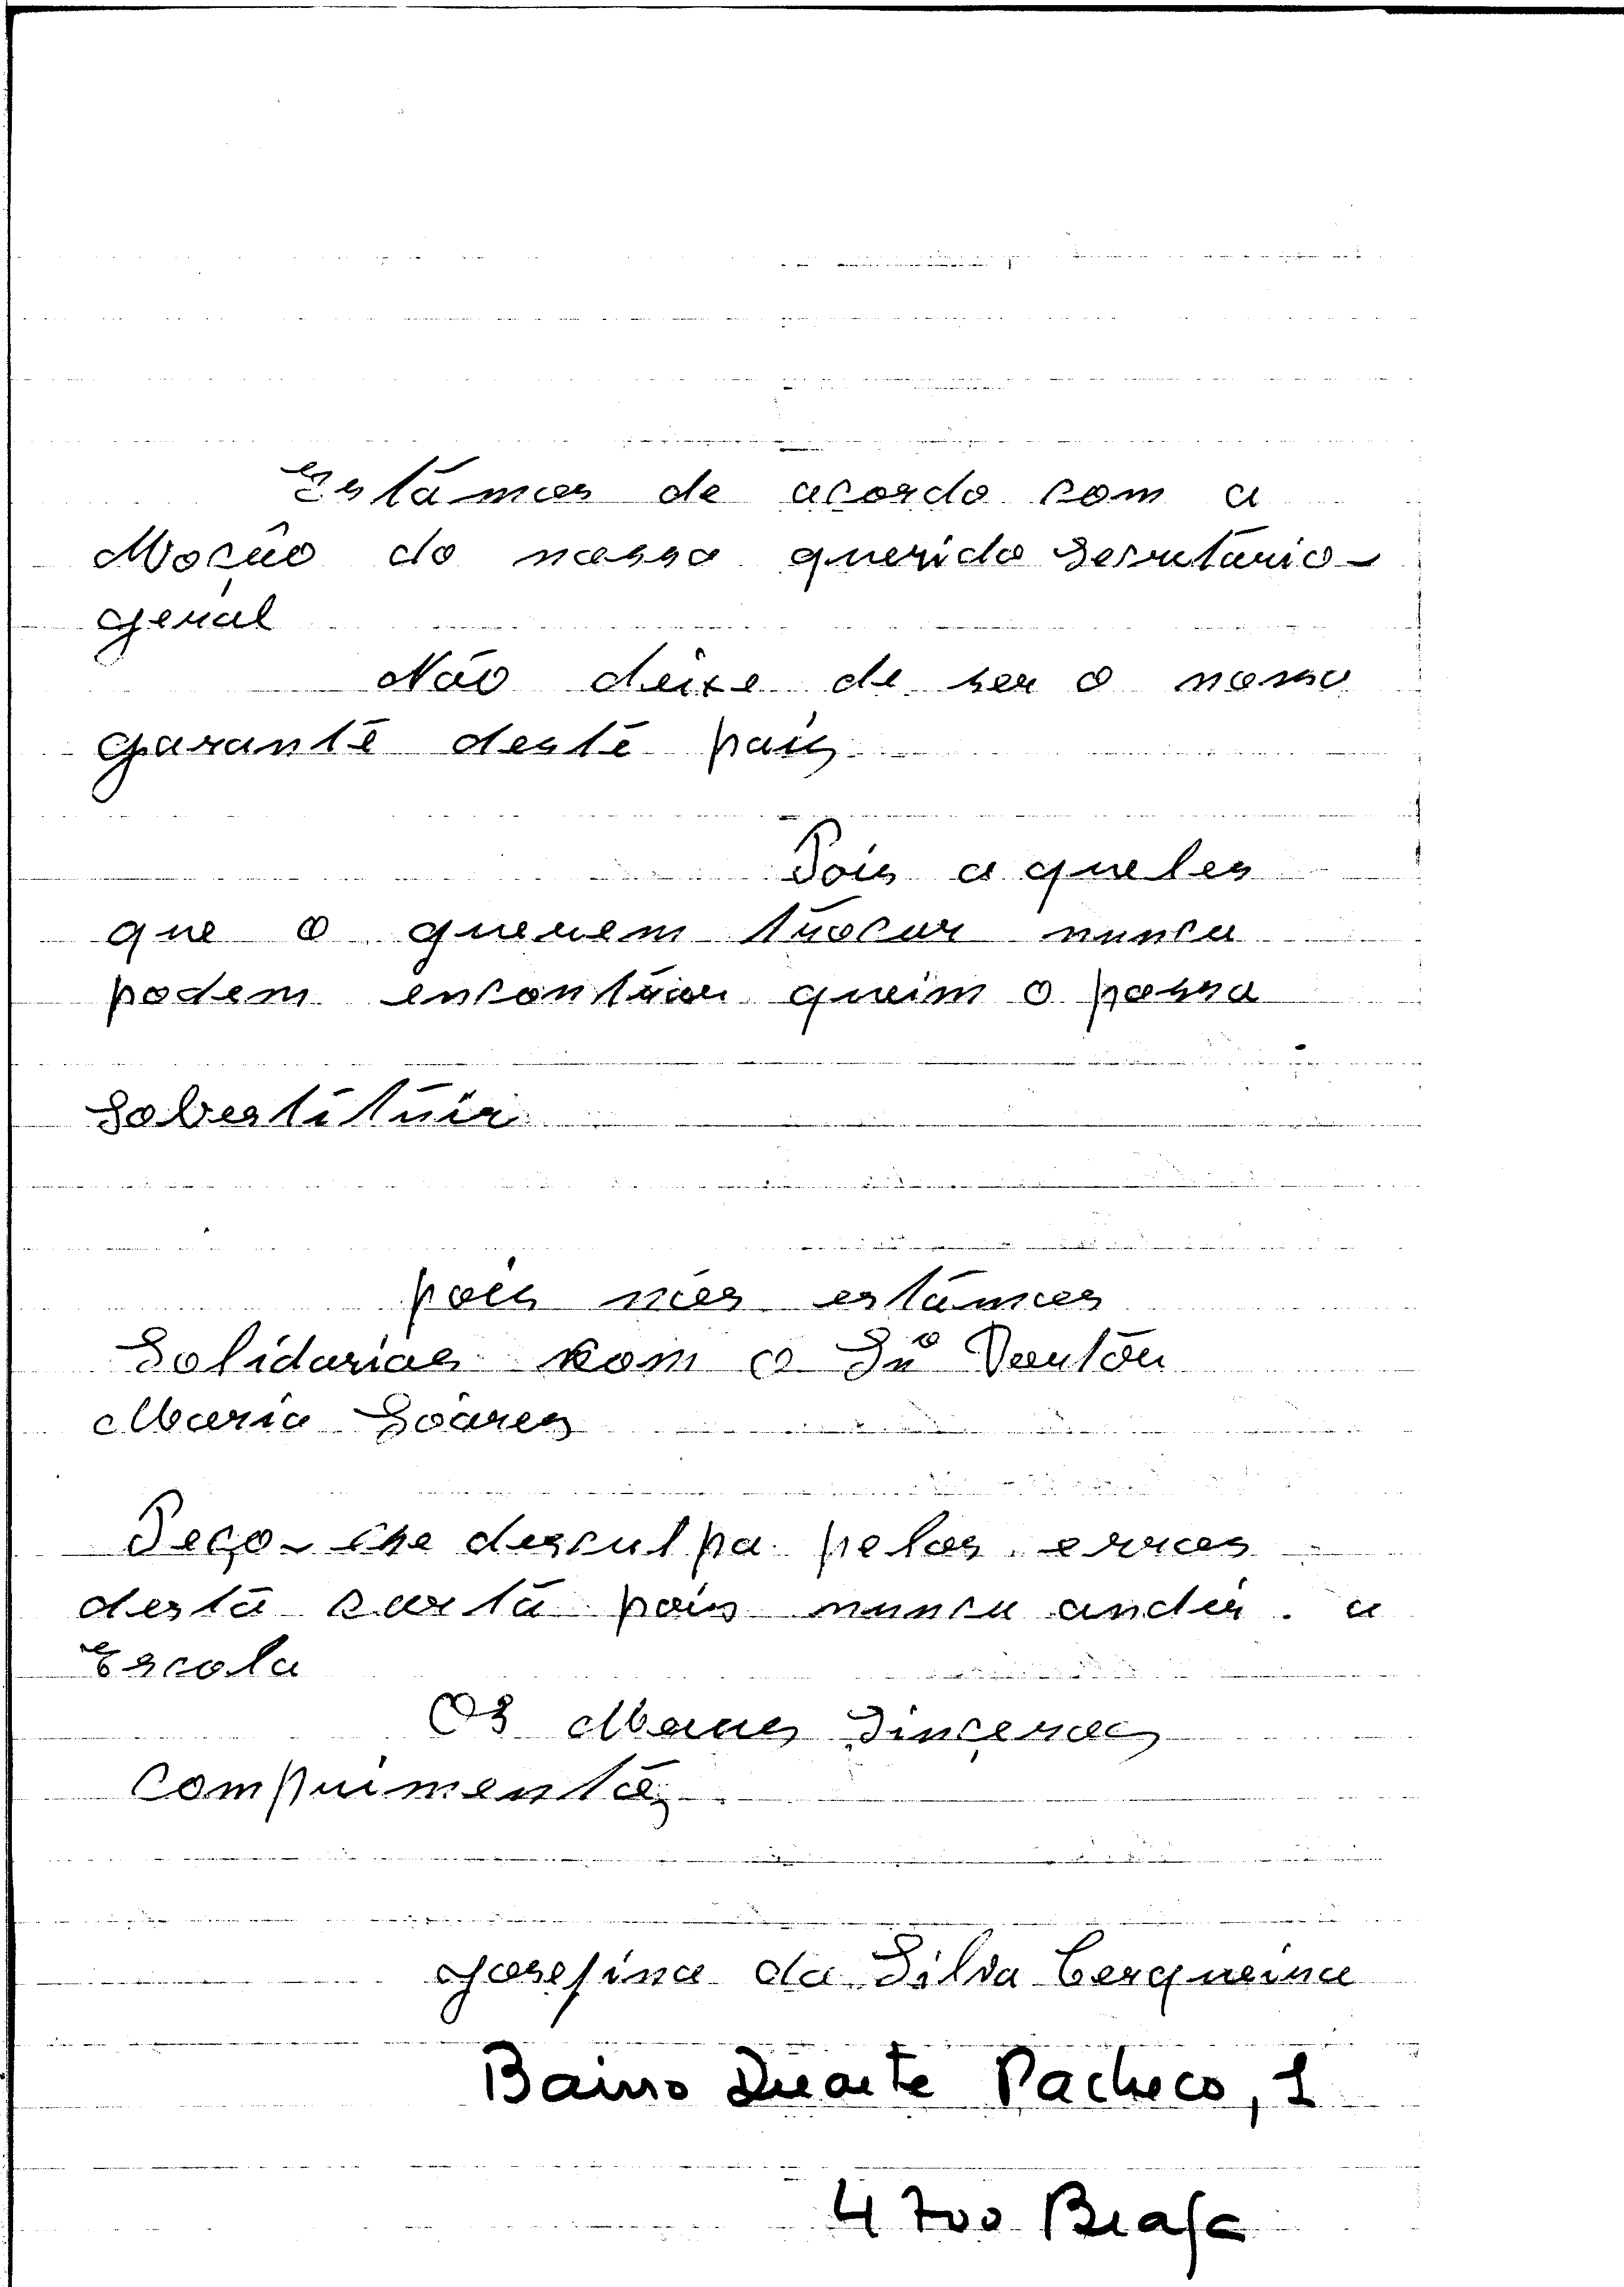 Estámos de acordo com a
Moção do nosso querido Secrutário-
geral
Não deixe de ser o nosso
garante deste país
Pois a queles
que o querem trocar nunca
podem encontrar queim o possa
Sobestituir
pois nós estámos
Solidarios com o Snº Doutor
Mario Soares
Peço-lhe desculpa pelos erros
desta carta pois nunca andei a
Escola
Os Meus Sinçeros
Comprimentos
Josefina da Silva Cerqueira
Bairro Duarte Pacheco, 1
4700 Braga